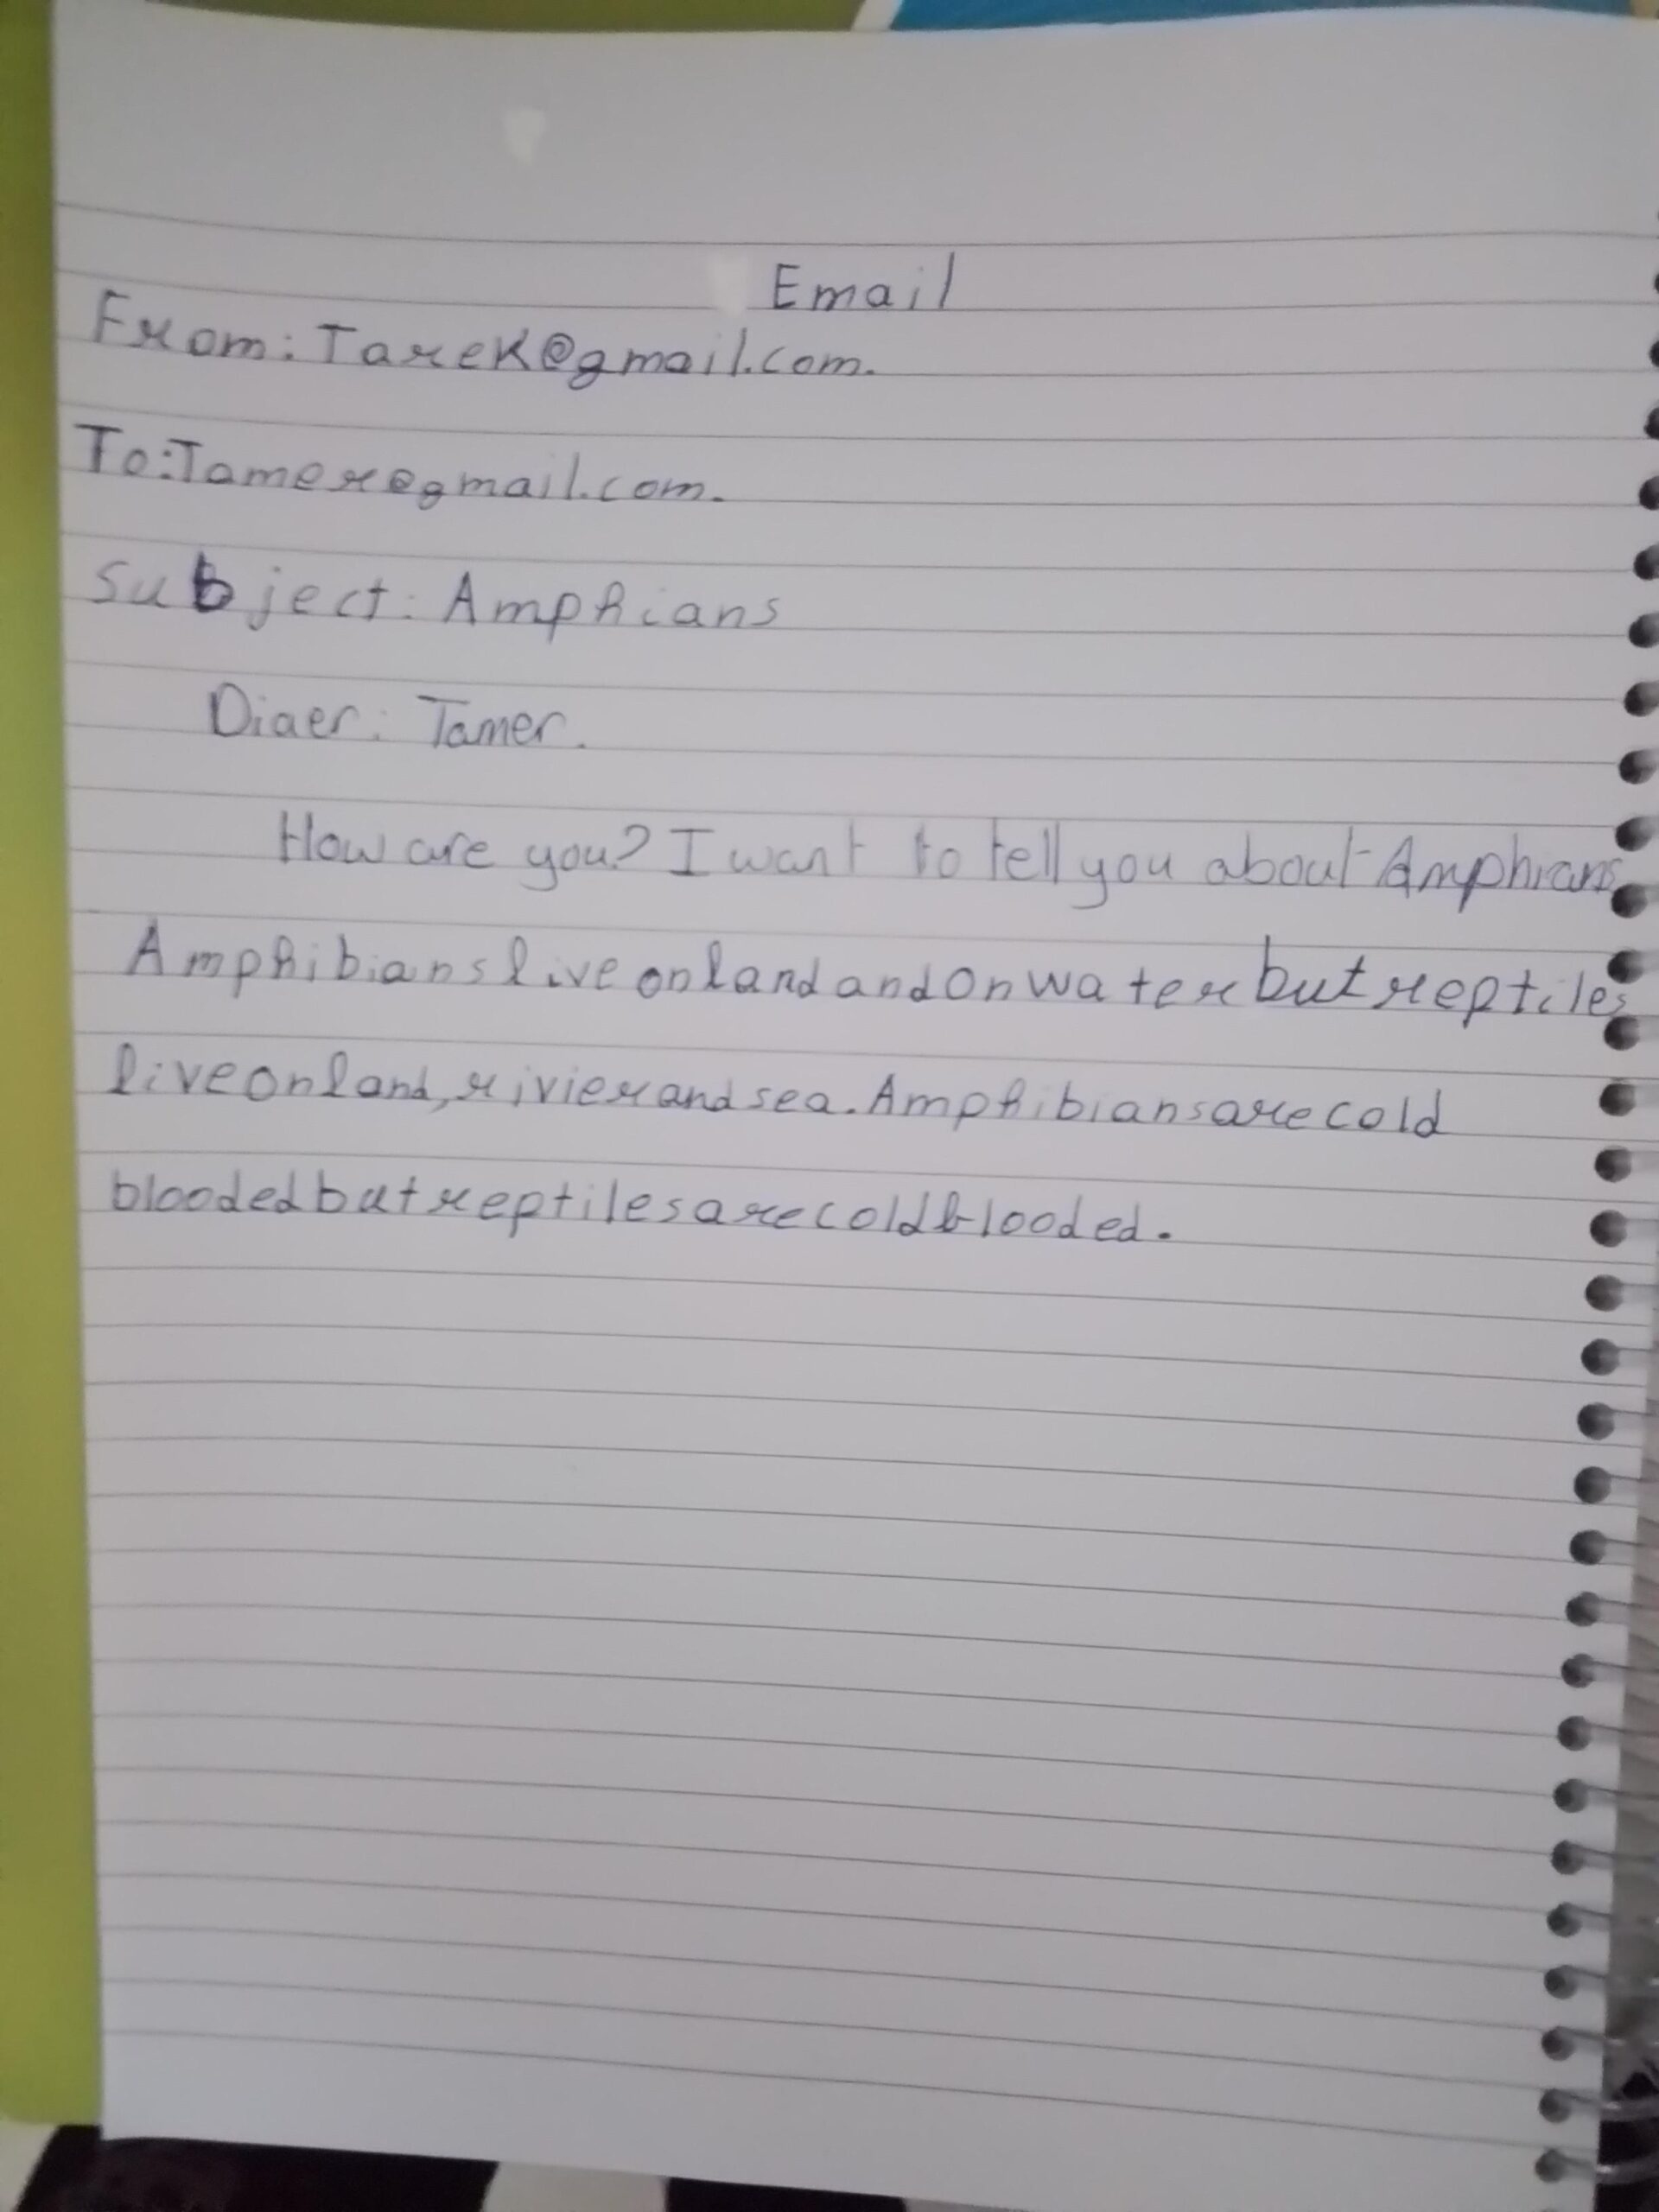 Email
From: Tarek@gmail.com.
To: Tamer@gmail.com.
subject: Amphians
Diaer: Tamer.
How are you? I want to tell you about Amphians
Amphibians live on land and on water but reptiles
live on land, rivier and sea. Amphibians are cold
blooded but reptiles are cold blooded.